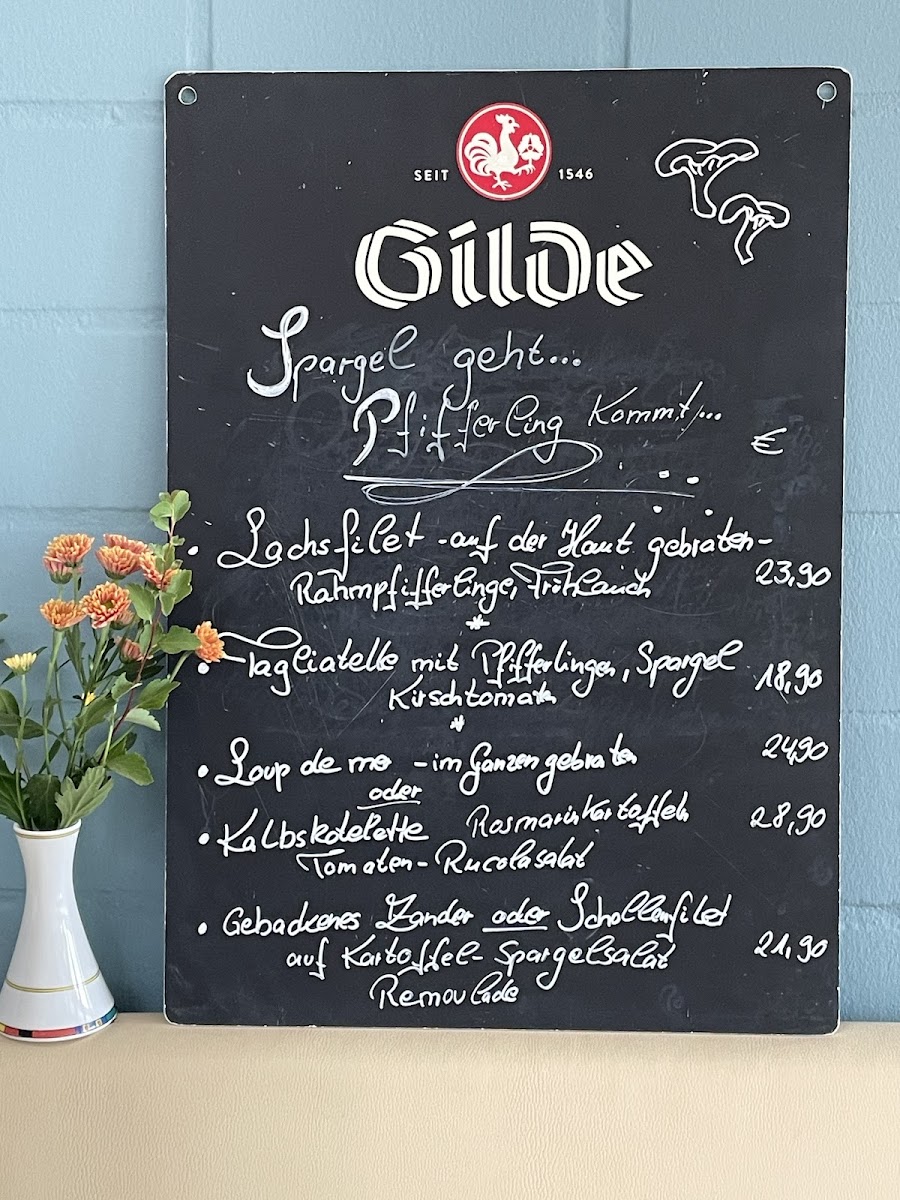 SEIT 1546
Gilde
Spargel geht...
Pfifferling kommt,...
€
• Lachsfilet - auf der Haut gebraten -
Rahmpfifferlinge, Frühlauch 23,90
*
• Tagliatelle mit Pfifferlingen, Spargel
Kirschtomaten 18,90
*
• Loup de mer - im Ganzen gebraten 24,90
oder
• Kalbskotelette Rosmarinkartoffeln 28,90
Tomaten-Rucolasalat
• Gebackenes Zander oder Schollenfilet
auf Kartoffel-Spargelsalat 21,90
Remoulade